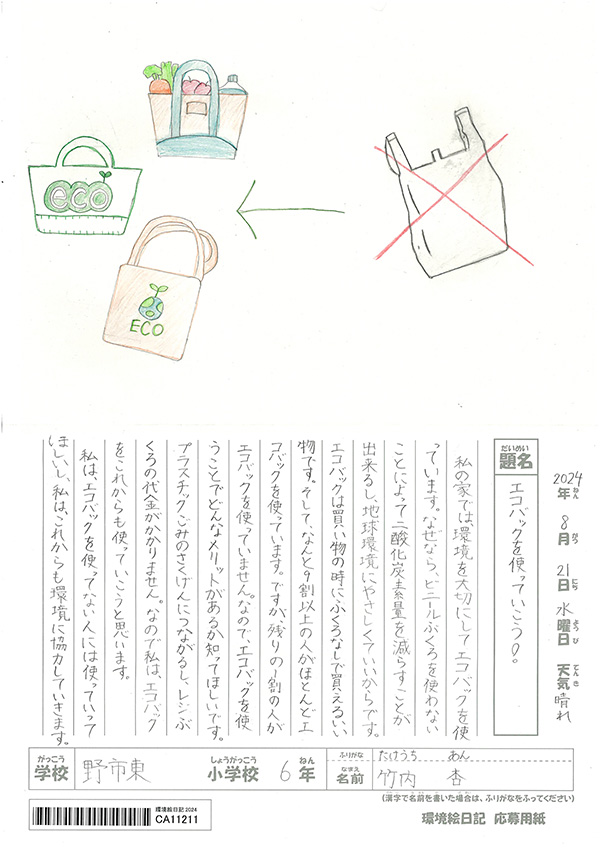 eco
ECO
2024年ねん 8月がつ 21日にち 水曜日ようび 天気てんき 晴れ
題名だいめい
エコバックを使っていこう!。
私の家では、環境を大切にしてエコバックを使
っています。なぜなら、ビニールぶくろを使わない
ことによって二酸化炭素量を減らすことが
出来るし、地球環境にやさしくていいからです。
エコバックは買い物の時にふくろなしで買えるいい
物です。そして、なんと9割以上の人がほとんどエ
コバックを使っています。ですが、残りの1割の人が
エコバックを使っていません。なので、エコバックを使
うことでどんなメリットがあるか知ってほしいです。
プラスチックごみのさくげんにつながるし、レジぶ
くろの代金がかかりません。なので私は、エコバック
をこれからも使っていこうと思います。
私は、エコバックを使ってない人には使っていって
ほしいし、私は、これからも環境に協力していきます。
学校がっこう 野市東 小学校しょうがっこう 6年ねん
ふりがな たけうち あん
名前なまえ 竹内 杏
(漢字で名前を書いた場合は、ふりがなをふってください)
環境絵日記2024
CA11211
環境絵日記 応募用紙